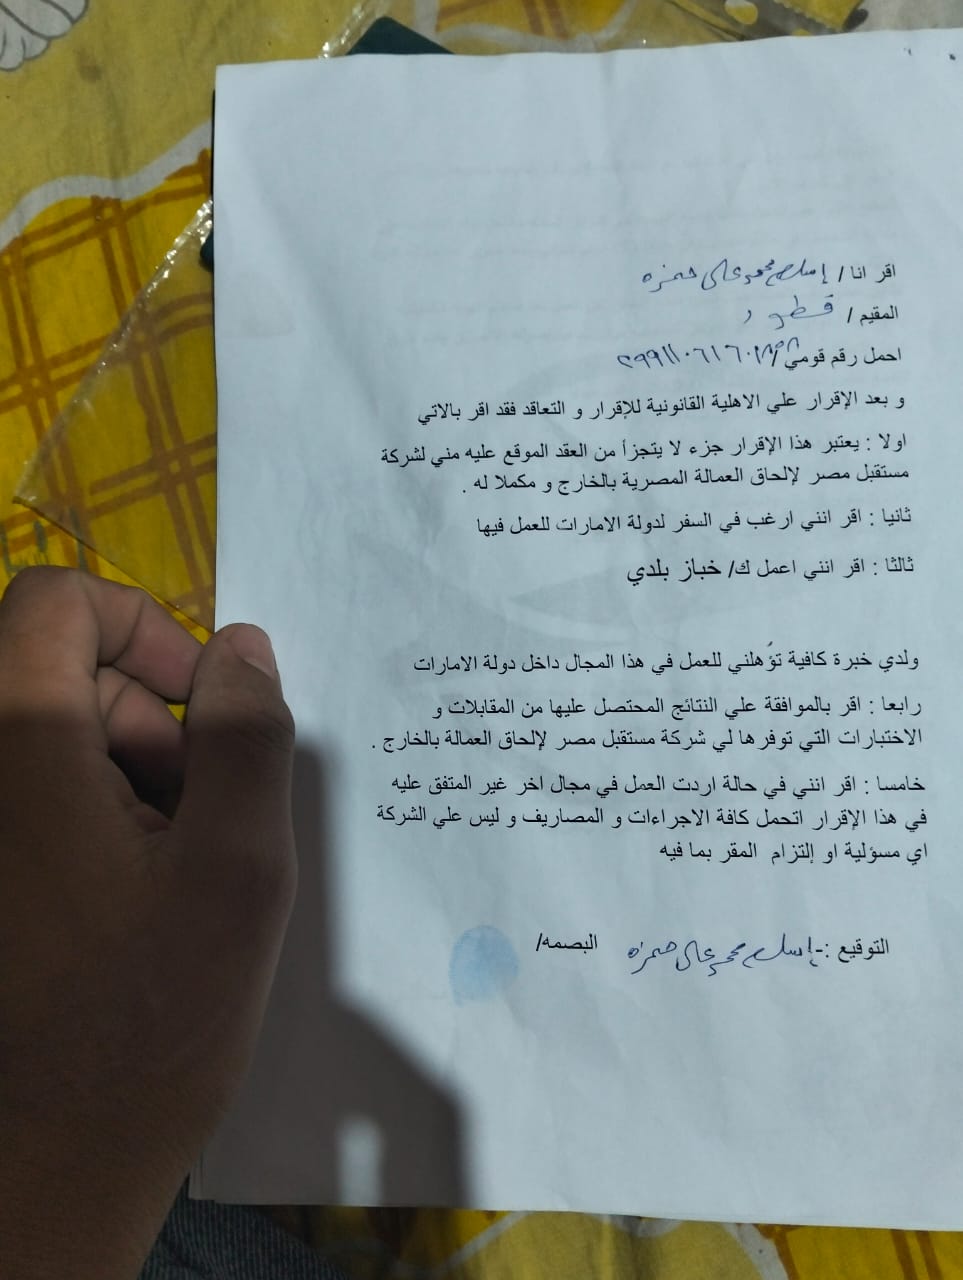 اقر انا / إسلام محمد علي حمزه
المقيم / قطور
احمل رقم قومي /
و بعد الإقرار علي الاهلية القانونية للإقرار و التعاقد فقد اقر بالاتي
اولا : يعتبر هذا الإقرار جزء لا يتجزأ من العقد الموقع عليه مني لشركة
مستقبل مصر لإلحاق العمالة المصرية بالخارج و مكملا له .
ثانيا : اقر انني ارغب في السفر لدولة الامارات للعمل فيها
ثالثا : اقر انني اعمل ك/ خباز بلدي
ولدي خبرة كافية تؤهلني للعمل في هذا المجال داخل دولة الامارات
رابعا : اقر بالموافقة علي النتائج المحتصل عليها من المقابلات و
الاختبارات التي توفرها لي شركة مستقبل مصر لإلحاق العمالة بالخارج .
خامسا : اقر انني في حالة اردت العمل في مجال اخر غير المتفق عليه
في هذا الإقرار اتحمل كافة الاجراءات و المصاريف و ليس علي الشركة
اي مسؤلية او إلتزام المقر بما فيه
التوقيع :- إسلام محمد علي حمزه البصمه/